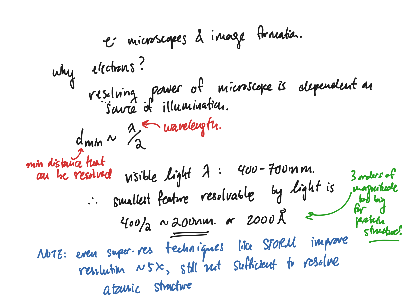 e⁻ microscopes & image formation.
why electrons?
resolving power of microscope is dependent on
source of illumination.
dmin ~ λ/2
wavelength.
min distance that
can be resolved
visible light λ : 400-700nm.
∴ smallest feature resolvable by light is
400/2 ~ 200nm. or 2000Å
3 orders of
magnitude
too big
for
protein
structure!
NOTE: even super-res techniques like STORM improve
resolution ~5x, still not sufficient to resolve
atomic structure